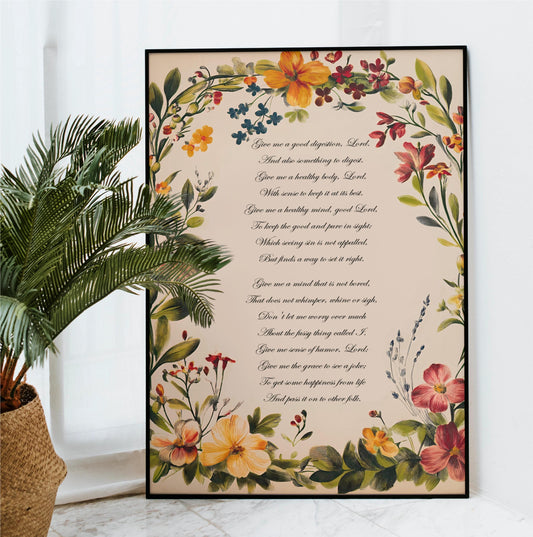 Give me a good digestion, Lord,
And also something to digest.
Give me a healthy body, Lord,
With sense to keep it at its best.
Give me a healthy mind, good Lord,
To keep the good and pure in sight;
Which seeing sin is not appalled,
But finds a way to set it right.
Give me a mind that is not bored,
That does not whimper, whine or sigh,
Don't let me worry over much
About the fussy thing called I,
Give me sense of humor, Lord;
Give me the grace to see a joke;
To get some happiness from life
And pass it on to other folk.